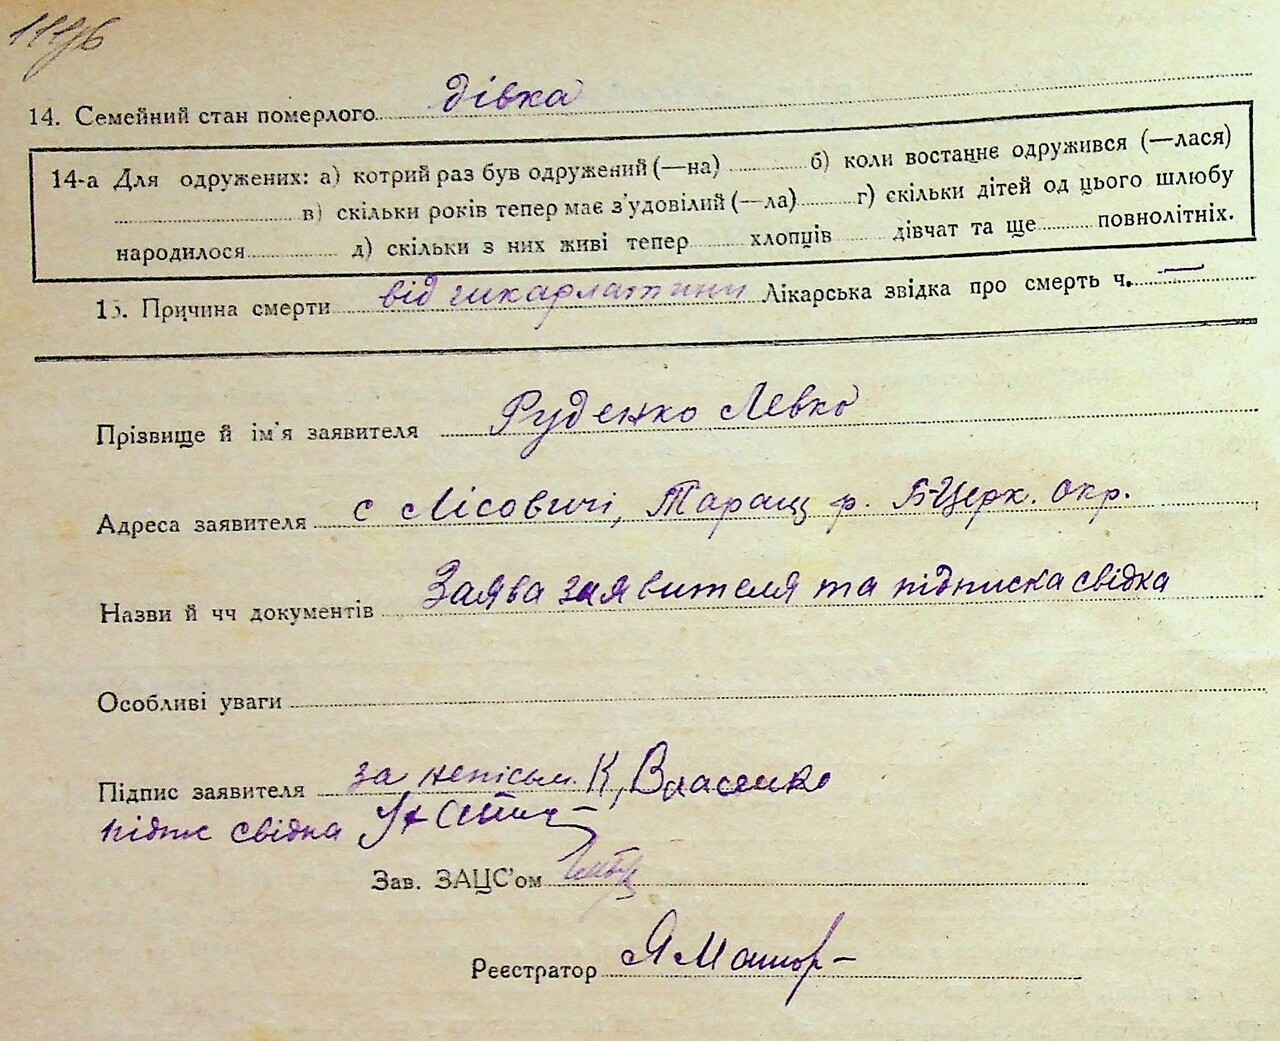 14. Семейний стан померлого дівка
14-а Для одружених: а) котрий раз був одружений (—на) б) коли востаннє одружився (—лася)
в) скільки років тепер має з'удовілий (—ла) г) скільки дітей од цього шлюбу
народилося д) скільки з них живі тепер хлопців дівчат та ще повнолітніх.
15. Причина смерти від шкарлатини Лікарська звідка про смерть ч. —
Прізвище й ім'я заявителя Руденко Левко
Адреса заявителя с Лісовичі, Таращ р. Б-Церк. окр.
Назви й чч документів Заява заявителя та підписка свідка
Особливі уваги
Підпис заявителя за непісьм. К, Власенко
підпис свідка
Зав. ЗАЦС'ом
Реєстратор